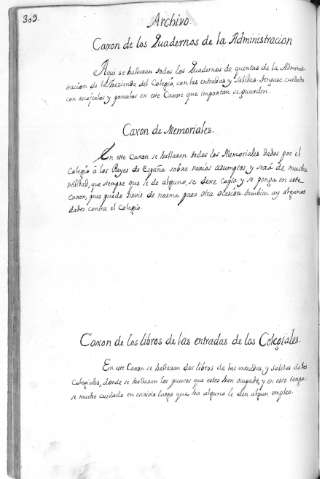 309.
Archivo
Caxon de los Quadernos de la Administracion
Aqui se hallaran todos los Quadernos de quentas de la Adminis-
tracion de la Hacienda del Colegio, con las entradas y salidas
con en este Caxon que importan se guarden.
Caxon de Memoriales.
En este Caxon se hallaran todos los Memoriales dados por el
Colegio a los Reyes de España sobre varios assumptos y será de mucha
utilidad, que siempre que se de alguno, se dexe copia y se ponga en este
caxon, que puede servir de norma para otra ocasion tambien ay algunos
dados contra el Colegio.
Caxon de los libros de las entradas de los Colegiales.
En este Caxon se hallaran dos libros de las entradas, y salidas de los
Colegiales, donde se hallaran los puestos que estos han y en esto tenga-
se mucho cuidado en luego que a alguno le den algun empleo.